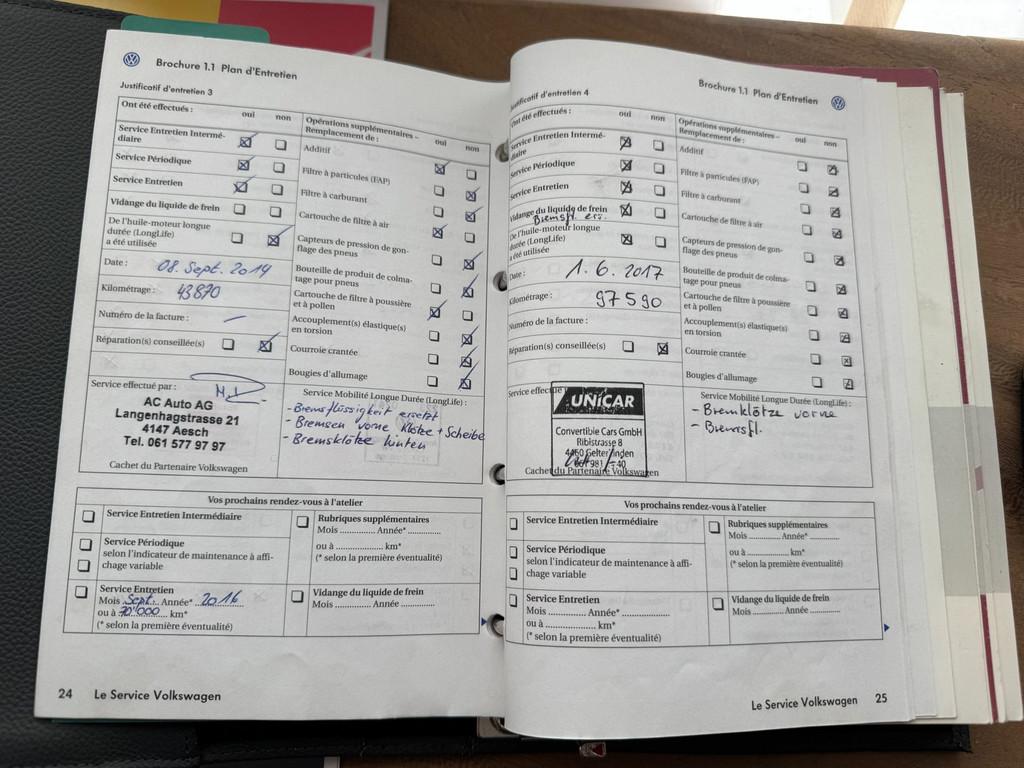 Brochure 1.1 Plan d'Entretien
Justificatif d'entretien 3
Ont été effectués :
oui non
Service Entretien Intermé-
diaire
Service Périodique
Service Entretien
Vidange du liquide de frein
De l'huile-moteur longue
durée (LongLife)
a été utilisée
Date : 08. Sept. 2014
Kilométrage : 43870
Numéro de la facture : —
Réparation(s) conseillée(s)
Opérations supplémentaires –
Remplacement de :
oui non
Additif
Filtre à particules (FAP)
Filtre à carburant
Cartouche de filtre à air
Capteurs de pression de gon-
flage des pneus
Bouteille de produit de colma-
tage pour pneus
Cartouche de filtre à poussière
et à pollen
Accouplement(s) élastique(s)
en torsion
Courroie crantée
Bougies d'allumage
Service effectué par :
AC Auto AG
Langenhagstrasse 21
4147 Aesch
Tel. 061 577 97 97
Cachet du Partenaire Volkswagen
Service Mobilité Longue Durée (LongLife) :
- Bremsflüssigkeit ersetzt
- Bremsen vorne Klötze + Scheibe
- Bremsklötze hinten
Vos prochains rendez-vous à l'atelier
Service Entretien Intermédiaire
Service Périodique
selon l'indicateur de maintenance à affi-
chage variable
Service Entretien
Mois Sept. Année* 2016
ou à 70'000 km*
(* selon la première éventualité)
Rubriques supplémentaires
Mois .............. Année* ..............
ou à .................... km*
(* selon la première éventualité)
Vidange du liquide de frein
Mois .............. Année ..............
24 Le Service Volkswagen
Brochure 1.1 Plan d'Entretien
Justificatif d'entretien 4
Ont été effectués :
oui non
Service Entretien Intermé-
diaire
Service Périodique
Service Entretien
Vidange du liquide de frein
Bremsfl. ers.
De l'huile-moteur longue
durée (LongLife)
a été utilisée
Date : 1. 6. 2017
Kilométrage : 97590
Numéro de la facture :
Réparation(s) conseillée(s)
Opérations supplémentaires –
Remplacement de :
oui non
Additif
Filtre à particules (FAP)
Filtre à carburant
Cartouche de filtre à air
Capteurs de pression de gon-
flage des pneus
Bouteille de produit de colma-
tage pour pneus
Cartouche de filtre à poussière
et à pollen
Accouplement(s) élastique(s)
en torsion
Courroie crantée
Bougies d'allumage
Service effectué
UNiCAR
Convertible Cars GmbH
Ribistrasse 8
4460 Gelterkinden
Cachet du Partenaire Volkswagen
Service Mobilité Longue Durée (LongLife) :
- Bremklötze vorne
- Bremsfl.
Vos prochains rendez-vous à l'atelier
Service Entretien Intermédiaire
Service Périodique
selon l'indicateur de maintenance à affi-
chage variable
Service Entretien
Mois .............. Année* ..............
ou à .................... km*
(* selon la première éventualité)
Rubriques supplémentaires
Mois .............. Année* ..............
ou à .................... km*
(* selon la première éventualité)
Vidange du liquide de frein
Mois .............. Année ..............
Le Service Volkswagen 25